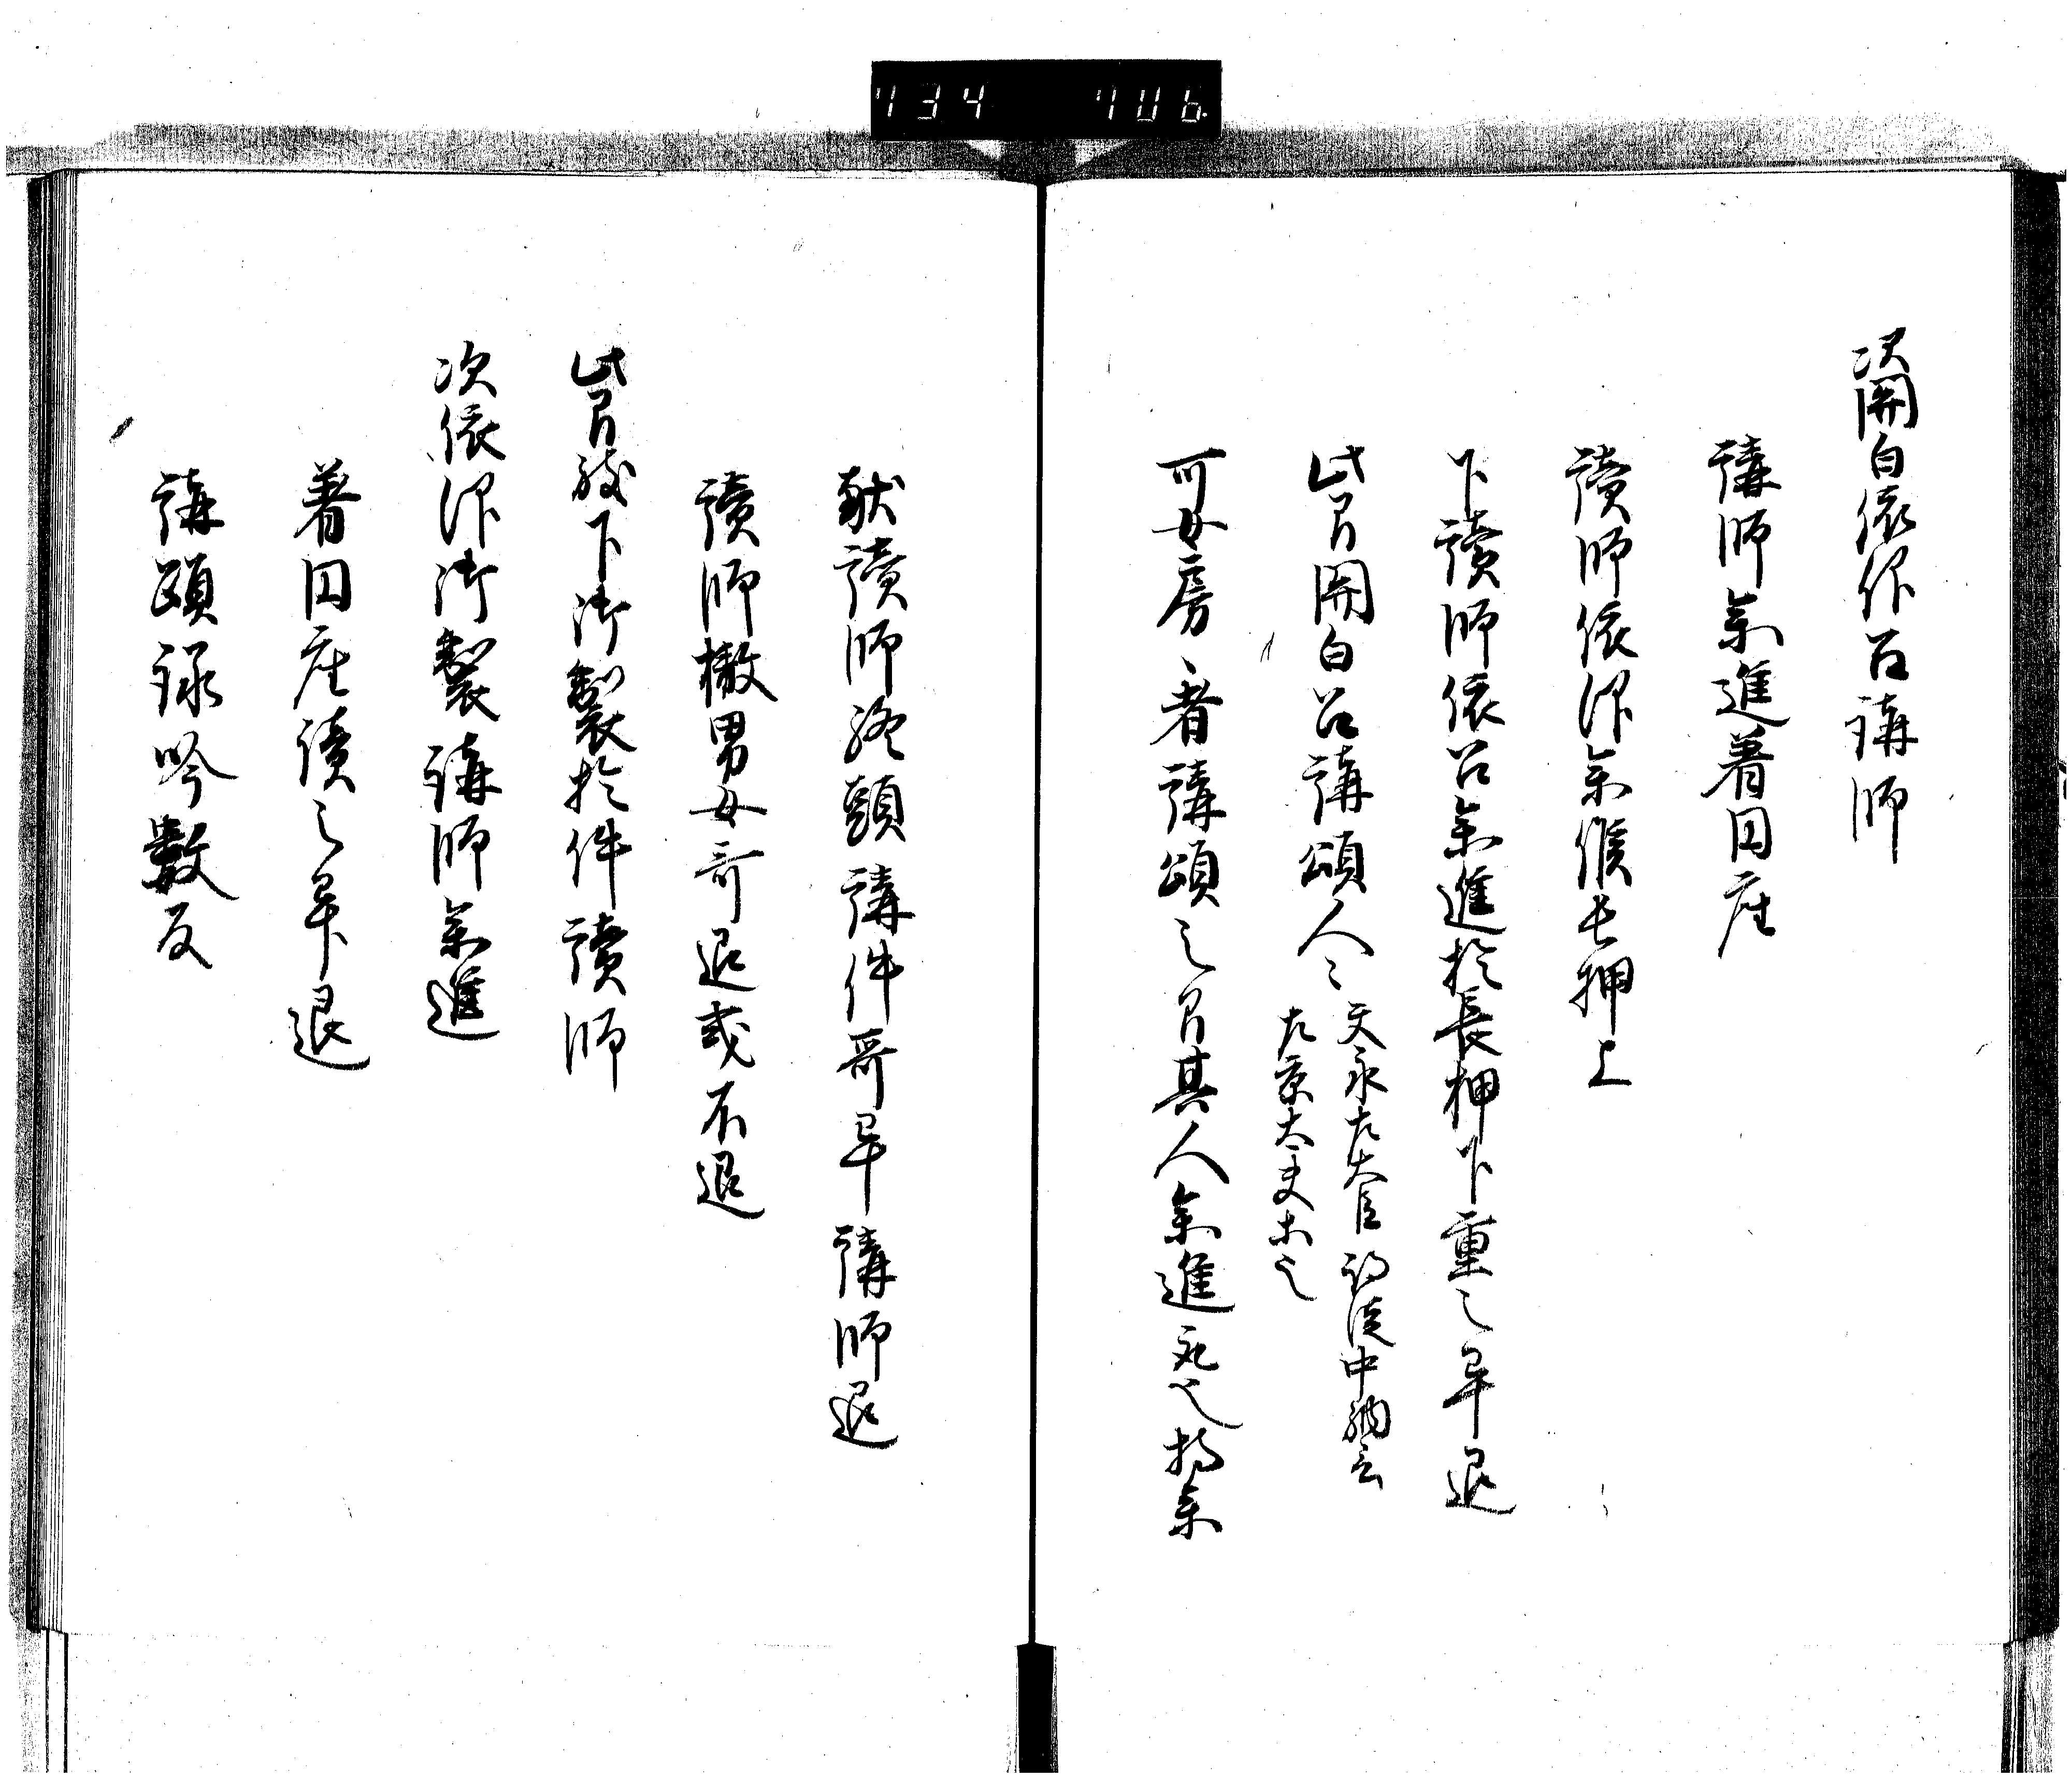 734 706
次関白依仰召講師
講師参進着円座
讀師依仰参候長押上
下讀師依召参進於長押下重之畢退
此間関白召講頌人々
天永左大臣 治定中納言
左京大夫等也
可女房者講頌之間其人参進取之持参
献讀師終頭講件哥畢講師退
讀師撤男女哥退或不退
此間被下御製於件讀師
次依仰御製講師参進
着円座読之畢退
講頌詠吟數反